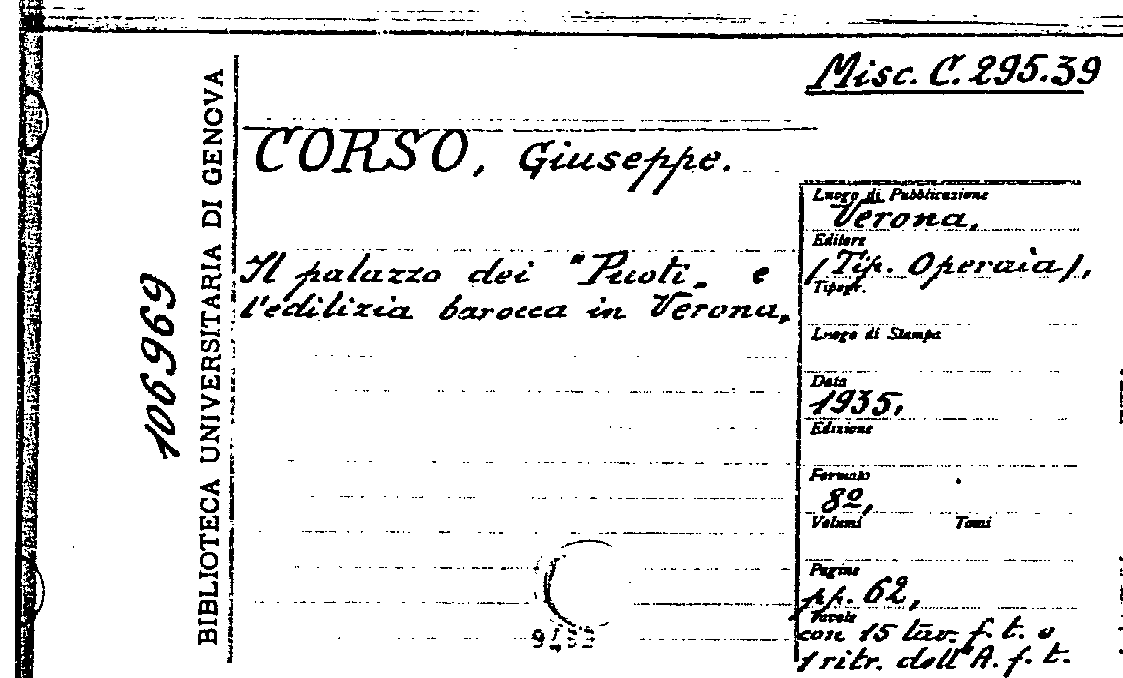 Misc. C. 295.39
BIBLIOTECA UNIVERSITARIA DI GENOVA
106969
CORSO, Giuseppe.
Il palazzo dei "Puoti„ e
l'edilizia barocca in Verona,
Luogo di Pubblicazione
Verona,
Editore
(Tip. Operaia),
Tipogr.
Luogo di Stampa
Data
1935,
Edizione
Formato
8º,
Volumi Tomi
Pagine
pp. 62,
Tavole
con 15 tav. f. t. e
1 ritr. dell'A. f. t.